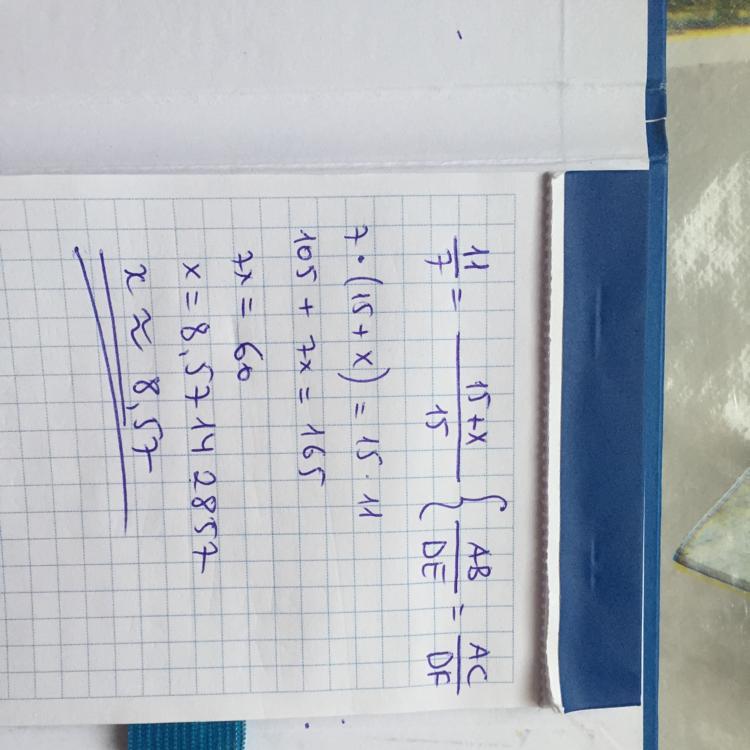 11/7 = (15+x)/15 { AB/DE = AC/DF
7 · (15 + x) = 15 · 11
105 + 7x = 165
7x = 60
x = 8,57142857
x ≈ 8,57